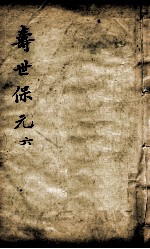 壽世保元 六